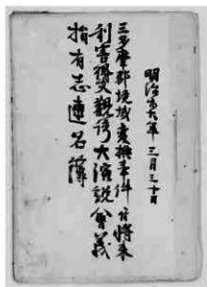 明治廿六年 三月三十日
三多摩郡境域変換事件ニ付将来
利害得失観ル大演説会義
捐有志連名簿